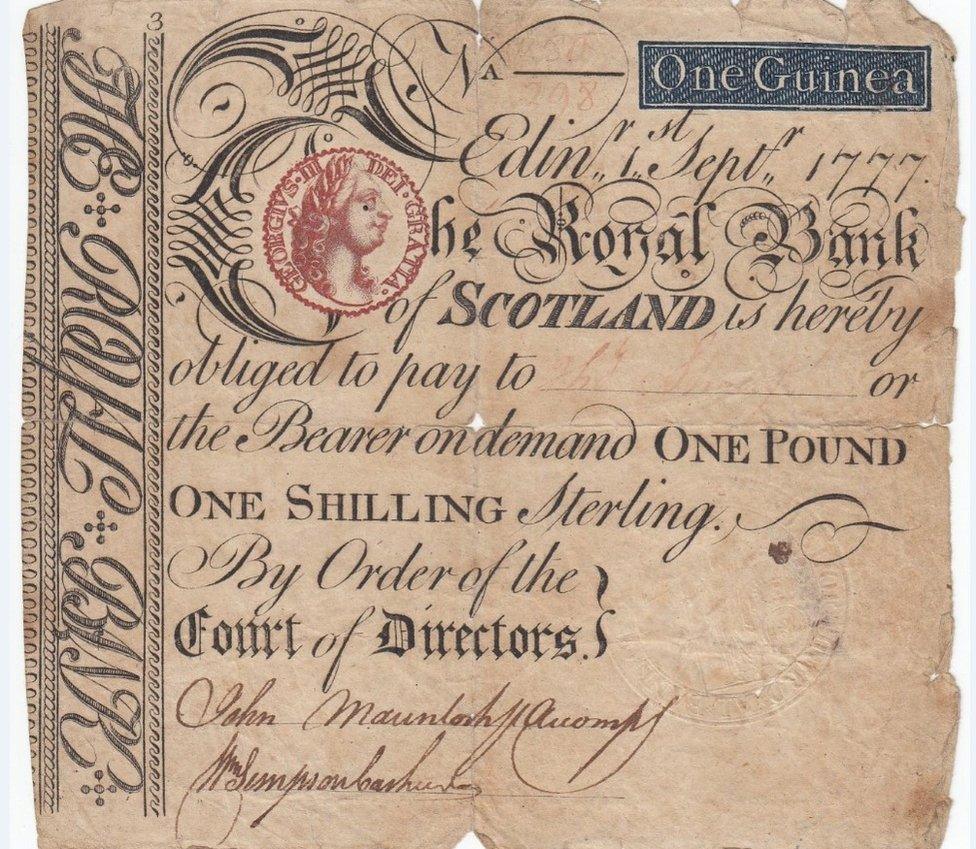 3
No
298
One Guinea
Edinr. 1st. Septr. 1777.
GEORGIVS·III·DEI·GRATIA·
The Royal Bank
of SCOTLAND is hereby
obliged to pay to or
the Bearer on demand ONE POUND
ONE SHILLING Sterling.
By Order of the
Court of Directors.
John
Wm Simpson Cashier